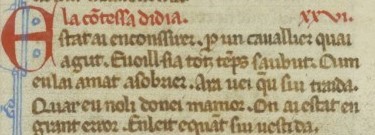 la cõtessa didia. xxvi.
Estat ai enconssirer. p un cauallier quai
agut. Euoill sia tot tẽps saubut. Cum
eu lai amat asobrier. Ara uei qu sui traida.
Qar eu noli donei mamor. On ai estat en
grant error. En leit e quãt sui uestida.